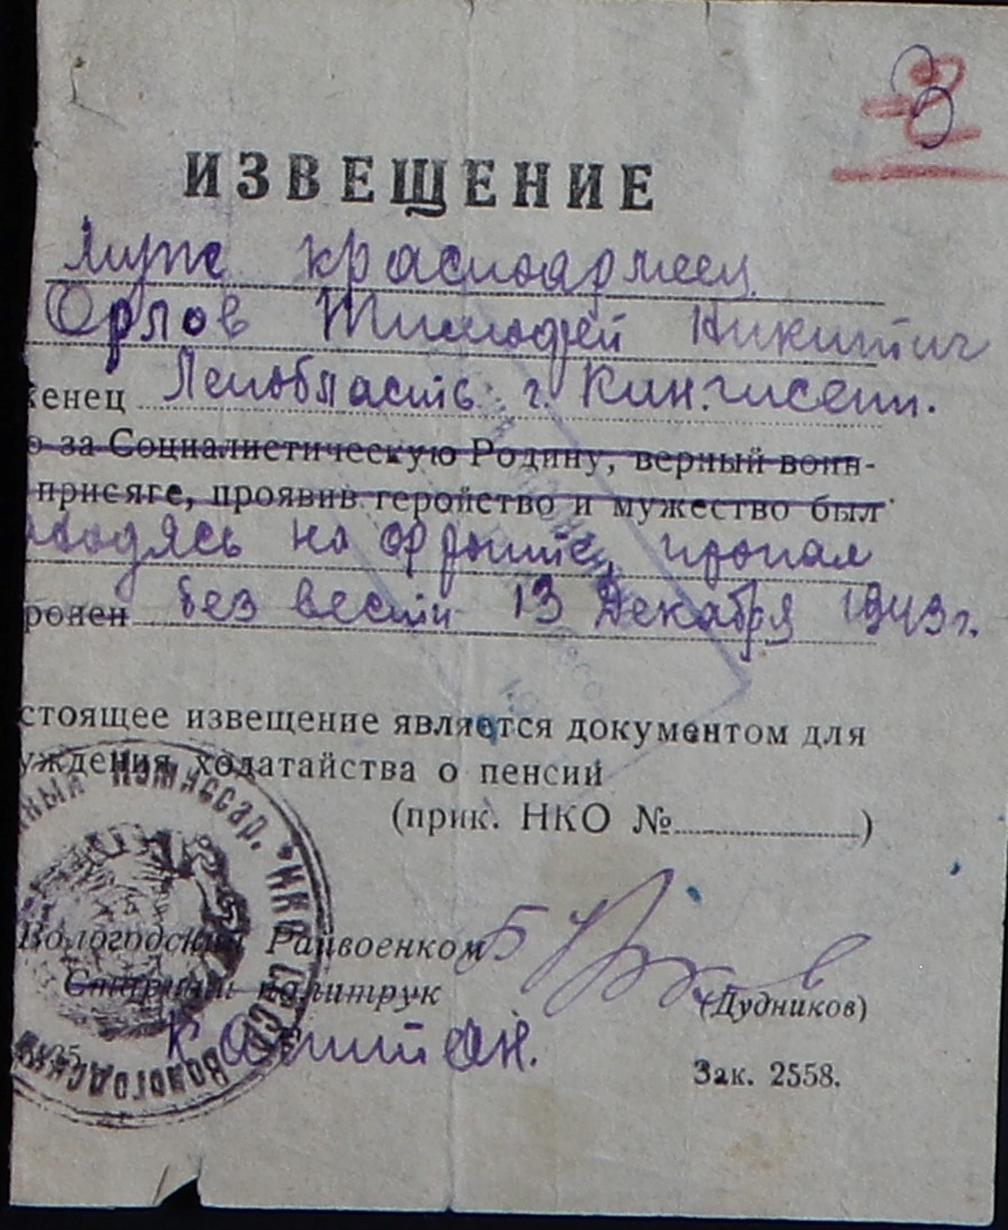 3
ИЗВЕЩЕНИЕ
Муж красноармеец
Орлов Тимофей Никитич
женец Ленобласть г. Кингисепп.
о за Социалистическую Родину, верный воин-
присяге, проявив геройство и мужество был
находясь на фронте, пропал
ронен без вести 13 Декабря 1943 г.
стоящее извещение является документом для
уждения ходатайства о пенсии
(прик. НКО №)
Комиссар. НКО СССР Вологодский
Вологодский Райвоенком
Старший политрук
(Дудников)
Капитан.
Зак. 2558.